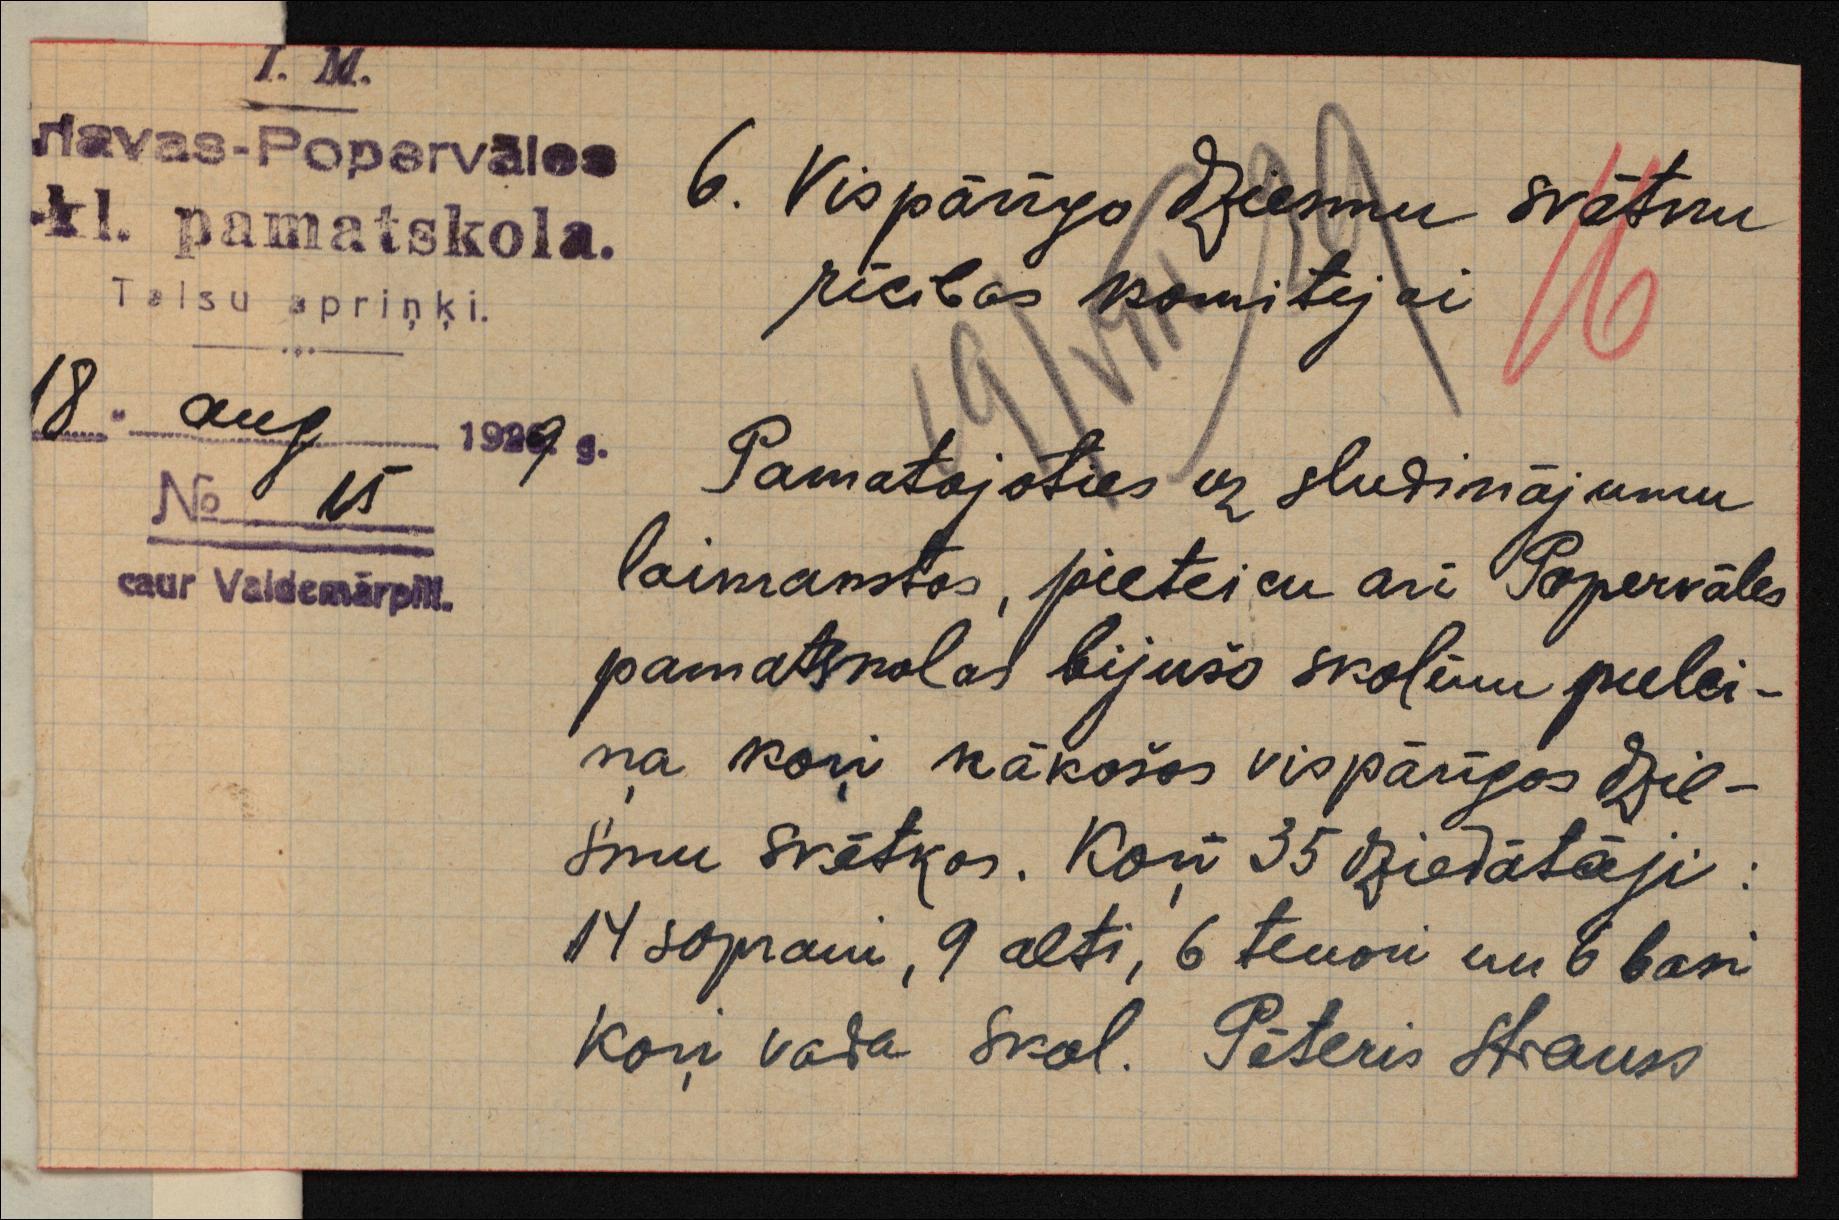 I. M.
rlavas-Popervāles
kl. pamatskola.
Talsu apriņķi.
18." aug 1929 g.
No 15
caur Valdemārpili.
16
19/VIII 29
6. Vispārīgo dziesmu svētku
rīcības komitejai
Pamatojoties uz sludinājumu
laikrakstos, pieteicu arī Popervāles
pamatskolas bijušo skolēnu pulci-
ņa kori nākošos vispārīgos dzie-
smu svētkos. Korī 35 dziedātāji:
14 soprani, 9 alti, 6 tenori un 6 basi
Kori vada skol. Pēteris Strauss